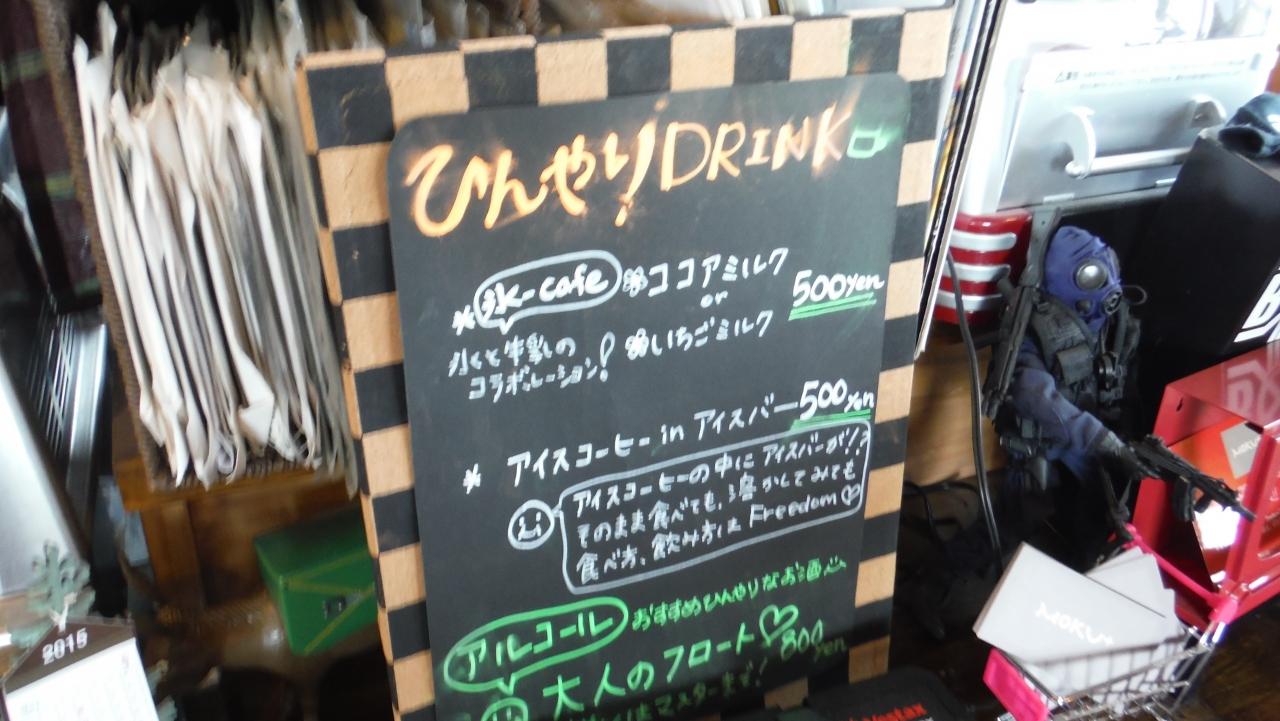 ひんやり DRINK
*氷-cafe ココアミルク
or
500yen
氷と牛乳の
コラボレーション!
いちごミルク
* アイスコーヒー in アイスバー 500yen
アイスコーヒーの中に アイスバーが!?
そのまま食べても、溶かしてみても
食べ方、飲み方は Freedom♡
アルコール おすすめひんやりなお酒
大人のフロート♡ 800yen
2015
MOKU
Vestax